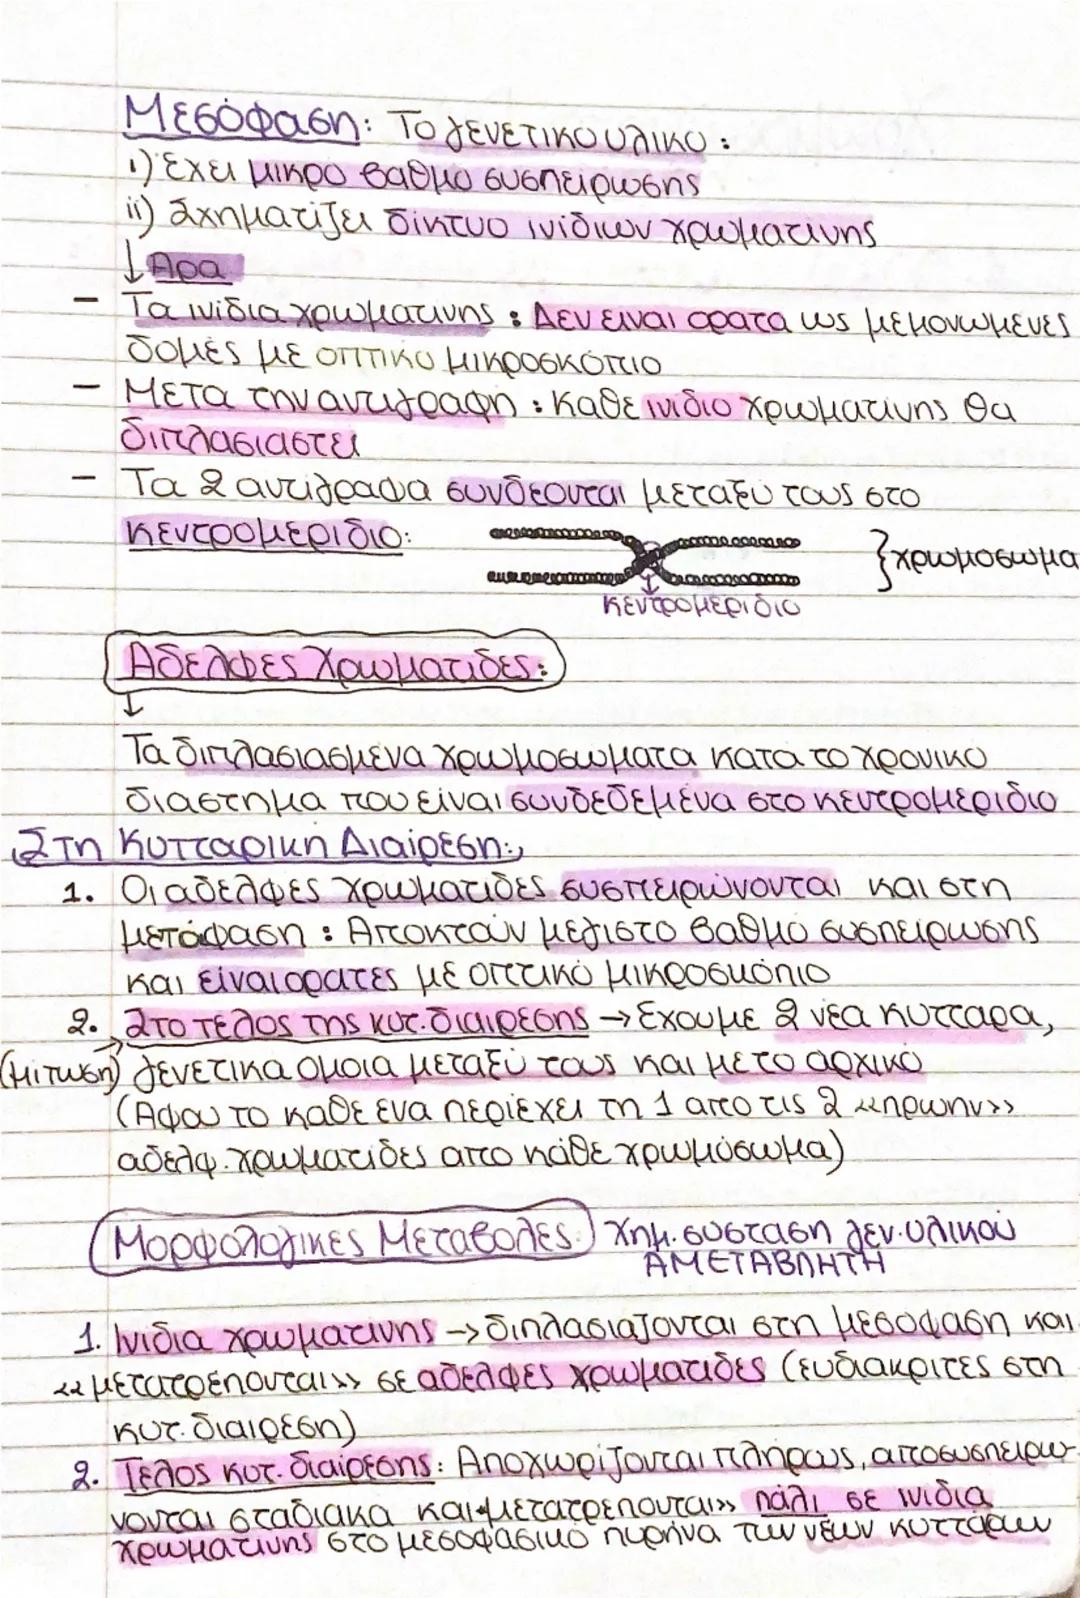 Μεσόφαση: Το γενετικο υλικο:
i) Έχει μικρο βαθμο συσπειρωσης
ii) Σχηματίζει δίκτυο ινίδιων χρωματινης
↓ Αρα
- Τα ινίδια χρωματινης : Δεν ειναι ορατα ως μεμονωμενες
δομές με οπτικο μικροσκόπιο
- Μετα την αντιγραφη : Καθε ινιδιο χρωματινης θα
διπλασιαστει
- Τα 2 αντιγραφα συνδεονται μεταξύ τους στο
κεντρομεριδιο:
} χρωμοσωμα
κεντρομεριδιο
Αδελφες Χρωματιδες:
↓
Τα διπλασιασμένα χρωμοσωματα κατα το χρονικο
διαστημα που είναι συνδεδεμένα στο κεντρομερίδιο
Στη Κυτταρικη Διαίρεση:
1. Οι αδελφες χρωματιδες συσπειρώνονται και στη
μετάφαση : Αποκτούν μεγιστο βαθμο συσπειρωσης
και είναι ορατες με οπτικό μικροσκόπιο
2. Στο τελος της κυτ. διαιρεσης → Εχουμε 2 νέα κυτταρα,
(μίτωση) γενετικα ομοια μεταξύ τους και με το αρχικο
(Αφου το καθε ενα περιέχει τη 1 απο τις 2 «πρωην»
αδελφ. χρωματιδες απο κάθε χρωμόσωμα)
Μορφολογικες Μεταβολες: Χημ. συσταση γεν. υλικού
ΑΜΕΤΑΒΛΗΤΗ
1. Ινιδια χρωματινης → διπλασιαζονται στη μεσοφαση και
«μετατρέπονται» σε αδελφες χρωματιδες (ευδιακριτες στη
κυτ. διαιρεση)
2. Τελος κυτ. διαίρεσης: Αποχωρίζονται πλήρως, αποσυσπειρω-
νονται σταδιακα και «μετατρεπονται» πάλι σε ινιδια
χρωματινης στο μεσοφασικο πυρήνα των νέων κυττάρων